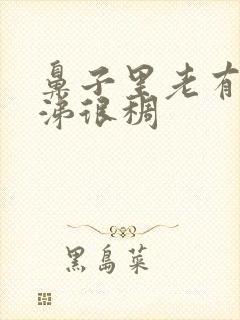 鼻子里老有
涕很稠
黑岛菜